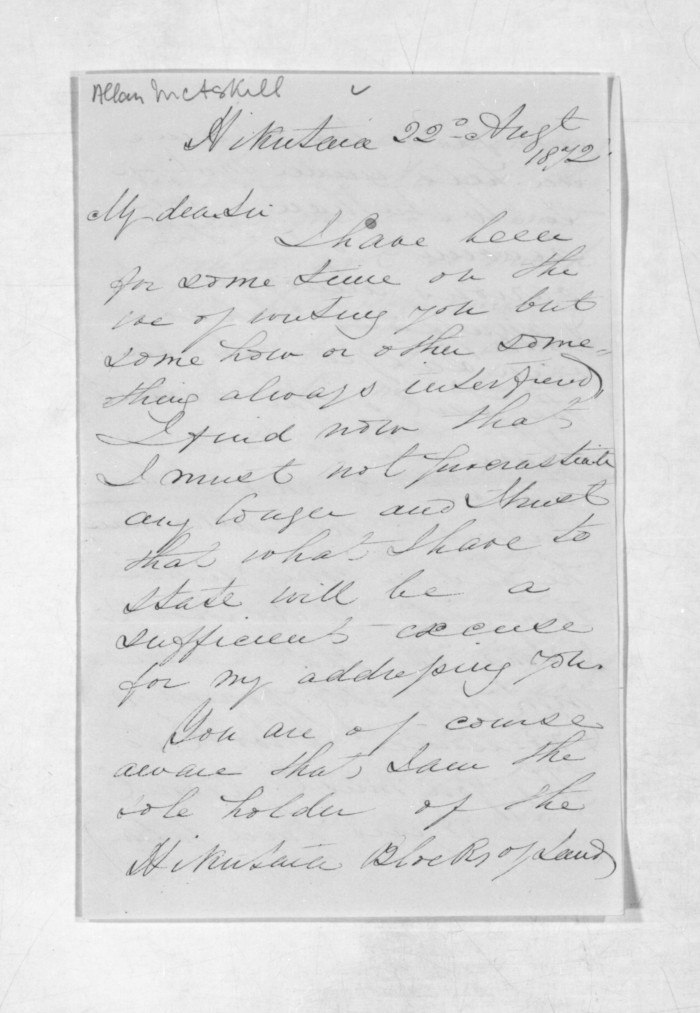 Allan McAskill
Hikutaia 22d Augt
1872
My dear Sir
I have been
for some time on the
eve of writing you but
some how or other some-
thing always interfered
I find now that
I must not procrastinate
any longer and I trust
that what I have to
state will be a
sufficient excuse
for my addressing you.
You are of course
aware that I am the
sole holder of the
Hikutaia Blocks of Land